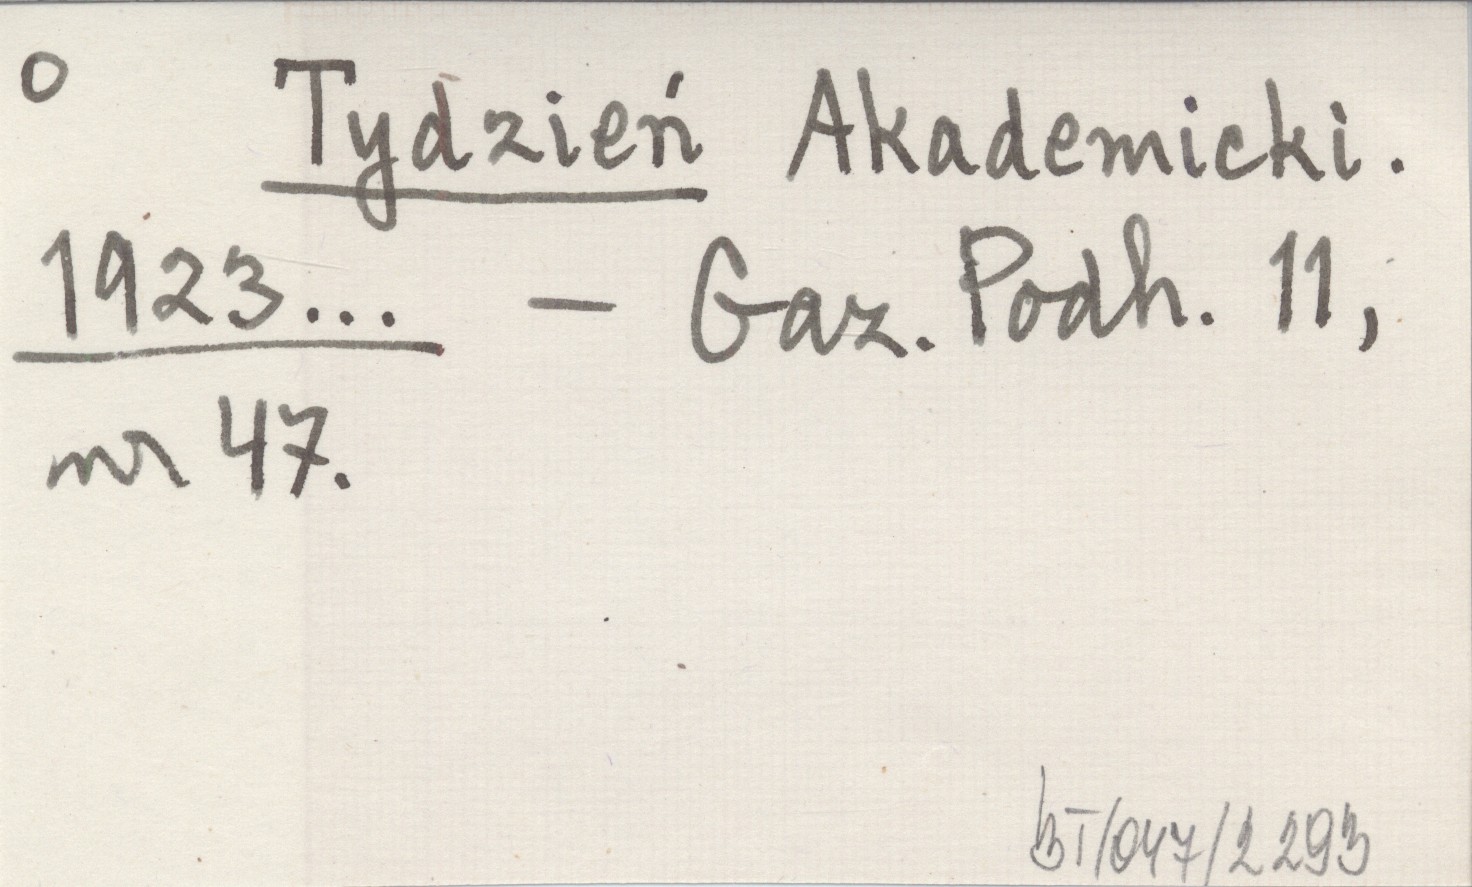 o Tydzień Akademicki.
1923... – Gaz. Podh. 11,
nr 47.
BT/047/2293